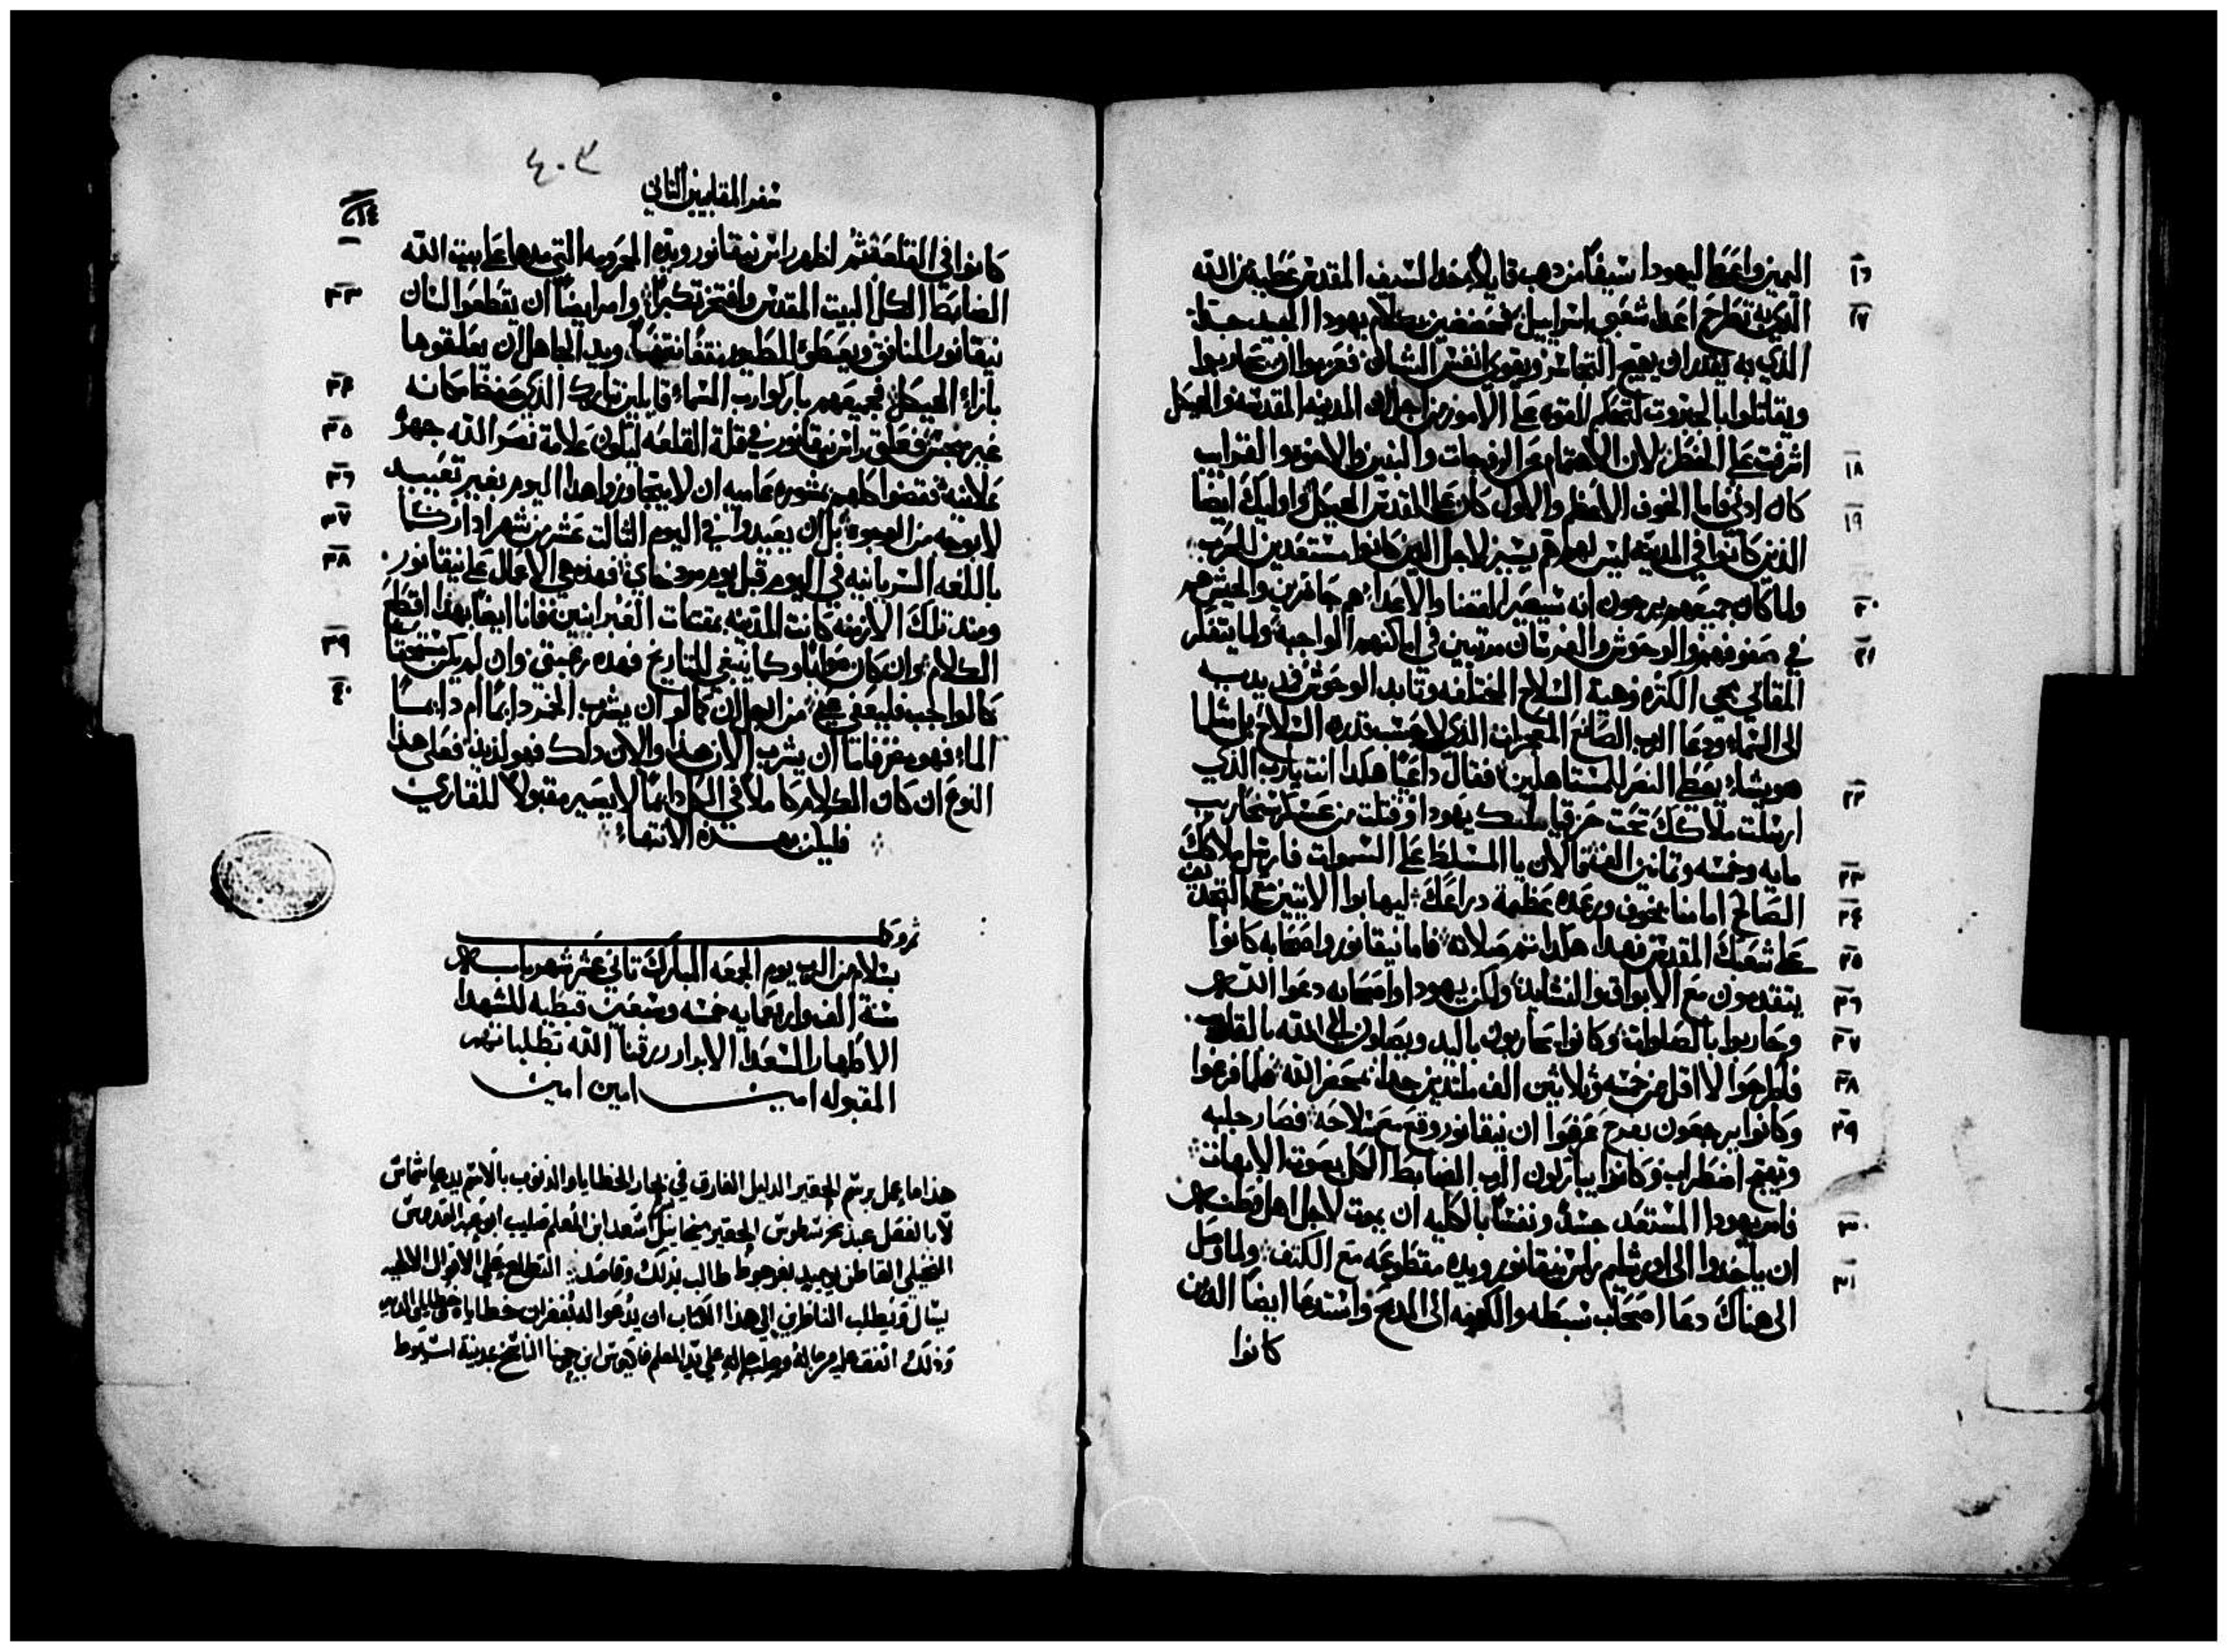 ١٦ اليمين واعطا ليهودا سيفًا من دهب قايلًا خد السيف المقدس عطية من الله
١٧ الذي به تطرح اعدا شعبي اسراييل فتعضعضين بكلام يهودا الجيد جدًا
الذي به يقدر ان يهيج التجاسر ويقوي انفس الشبان فعزموا ان يحاربوا
ويقاتلوا بالجبروت لتحكم القوه على الامور من اجل ان المدينه المقدسه والهيكل
١٨ اشرفت على الخطر لان الاهتمام عن الزوجات والبنين والاخوه والقرايب
١٩ كان ادنى فاما الخوف الاعظم والاول كان على المقدس الهيكل واوليك ايضًا
الذين كانوا في المدينه ليس لهم هم يسير لاجل الدين كانوا مستعدين للحرب
٢٠ ولما كان جميعهم يرجون انه سيصير القضا والاعدا هم حاضرين والجيش هم
٢١ في صفوفهم والوحوش والفرسان مرتبين في اماكنهم الواجبه ولما يتفكر
المقابي مجي الكثره وهبة السلاح المختلفه وتايد الوحوش فمد يديه
الى السماء ودعا الرب الصانع المعجزات الذي لا بحسب قدرة السلاح بل مثلما
٢٢ هو يشاء يعطي النصر للمستاهلين فقال داعيًا هكدا انت يا رب الذي
ارسلت ملاكك تحت حزقيا ملك يهودا وقتلت من عسكر سنحاريب
٢٣ مايه وخمسه وتمانين الف فالان يا المسلط على السموات فارسل ملاكك
٢٤ الصالح امامنا بخوف ورعده عظمة دراعك ليهابوا الاتيين مع التجديف
٢٥ على شعبك المقدس فهدا هكدا تمم صلاته فاما نيقانور واصحابه كانوا
٢٦ يتقدمون مع الابواق والنشايد ولكن يهودا واصحابه دعوا الله
٢٧ وحاربوا بالصلوات وكانوا يحاربون باليد ويصلون الى الله بالقلوب
٢٨ فطرحوا لا اقل من خمسه وثلاثين الف ملتدين جدًا بمحضر الله فلما فرغوا
٢٩ وكانوا يرجعون بفرح عرفوا ان نيقانور وقع مع سلاحه فصار جلبه
وتهيج اضطراب وكانوا يباركون الرب الضابط الكل بصوت الابهات
٣٠ فامر يهودا المستعد جسدًا ونفسًا بالكليه ان يموت لاجل اهل وطنه
٣١ ان ياخدوا الى اورشليم راس نيقانور ويده مقطوعه مع الكتف ولما وصل
الى هناك دعا اصحاب سبطه والكهنه الى المدبح واستدعا ايضًا الدين
كانوا
٤٠٢
سفر المقابيين التاني
كانوا في القلعه ثم اظهر راس نيقانور ويده المحرومه التي مدها على بيت الله
٣٣ الضابط الكل البيت المقدس وافتخر تكبرًا وامر ايضًا ان يقطعوا لسان
نيقانور المنافق ويعطوه للطيور نتفًا نتفًا ويد الجاهل ان يعلقوها
٣٤ بازاء الهيكل فجميعهم باركوا رب السماء قايلين تبارك الذي حفظ مكانه
٣٥ غير نجس فعلق راس نيقانور في قلة القلعه لتكون علامة نصر الله جهرًا
٣٦ علانيه فقضوا كلهم بمشوره عاميه ان لا يتجاوزوا هدا اليوم بغير تعييد
٣٧ لا بوجه من الوجوه بل ان يعيدوا في اليوم الثالت عشر من شهر ادار كما
٣٨ باللغه السريانيه في اليوم قبل يوم مردخاي فهده هي الاعمال على نيقانور
ومند تلك الازمنه كانت المدينه بمقتنات العبرانيين فانا ايضًا بهدا اقطع
٣٩ الكلام وان كان صوابًا وكما ينبغي للتاريخ فهده رغبتي وان لم يكن مستحقًا
٤٠ كالواجب فليعفى عني من اجل ان كما لو ان يشرب الخمر دايمًا ام دايمًا
الماء فهو مضر فاما ان يشرب الان هدا والان داك فهو لذيذ فعلى هذا
النوع ان كان الكلام كاملًا في الكل دايمًا لا يصير مقبولًا للقاريين
فليكن بهده الانتهاء
تم وكمل
بسلام من الرب يوم الجمعه المبارك تاني عشر شهر بابه
سنة الف واربعمايه خمسه وتسعين قبطيه للشهدا
الاطهار السعدا الابرار رزقنا الله بطلباتهم
المقبوله امين امين امين
هذا ما عمل برسم الحقير الدليل الغارق في بحار الخطايا والذنوب بالاسم يدعا شماس
لا بالفعل عبد الحقير ميخاييل اسعد ابن المعلم صليب
طالب بذلك وقاصد التطلع على الاقوال الالهيه
يسال ويطلب الناظرين الى هذا الكتاب ان يدعوا له بغفران خطاياه
وذلك على يد المعلم ابن الناسخ بمدينة اسيوط